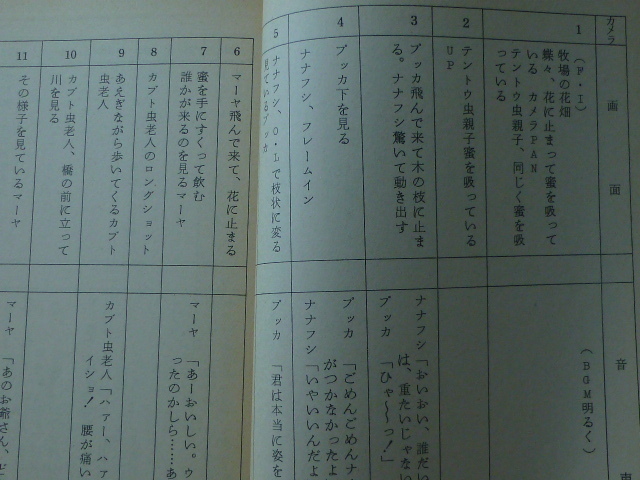 カメラ
画面
音
1
(F・I)
牧場の花畑
蝶々、花に止まって蜜を吸って
いる カメラPAN
テントウ虫親子、同じく蜜を吸
っている
(BGM明るく)
2
テントウ虫親子蜜を吸っている
UP
3
プッカ飛んで来て木の枝に止ま
る。ナナフシ驚いて動き出す
ナナフシ「おいおい、誰だい
は、重たいじゃない
プッカ「ひゃ〜〜っ!」
4
プッカ下を見る
ナナフシ、フレームイン
プッカ「ごめんごめんナ
がつかなかったよ
ナナフシ「いやいいんだよ
5
ナナフシ、O・Lで枝状に変る
見ているプッカ
プッカ「君は本当に姿を
6
マーヤ飛んで来て、花に止まる
7
蜜を手にすくって飲む
誰かが来るのを見るマーヤ
マーヤ「あーおいしい。ウ
ったのかしら……あ
8
カブト虫老人のロングショット
9
あえぎながら歩いてくるカブト
虫老人
カブト虫老人「ハァー、ハァ
イショ! 腰が痛い
10
カブト虫老人、橋の前に立って
川を見る
11
その様子を見ているマーヤ
マーヤ「あのお爺さん、ど